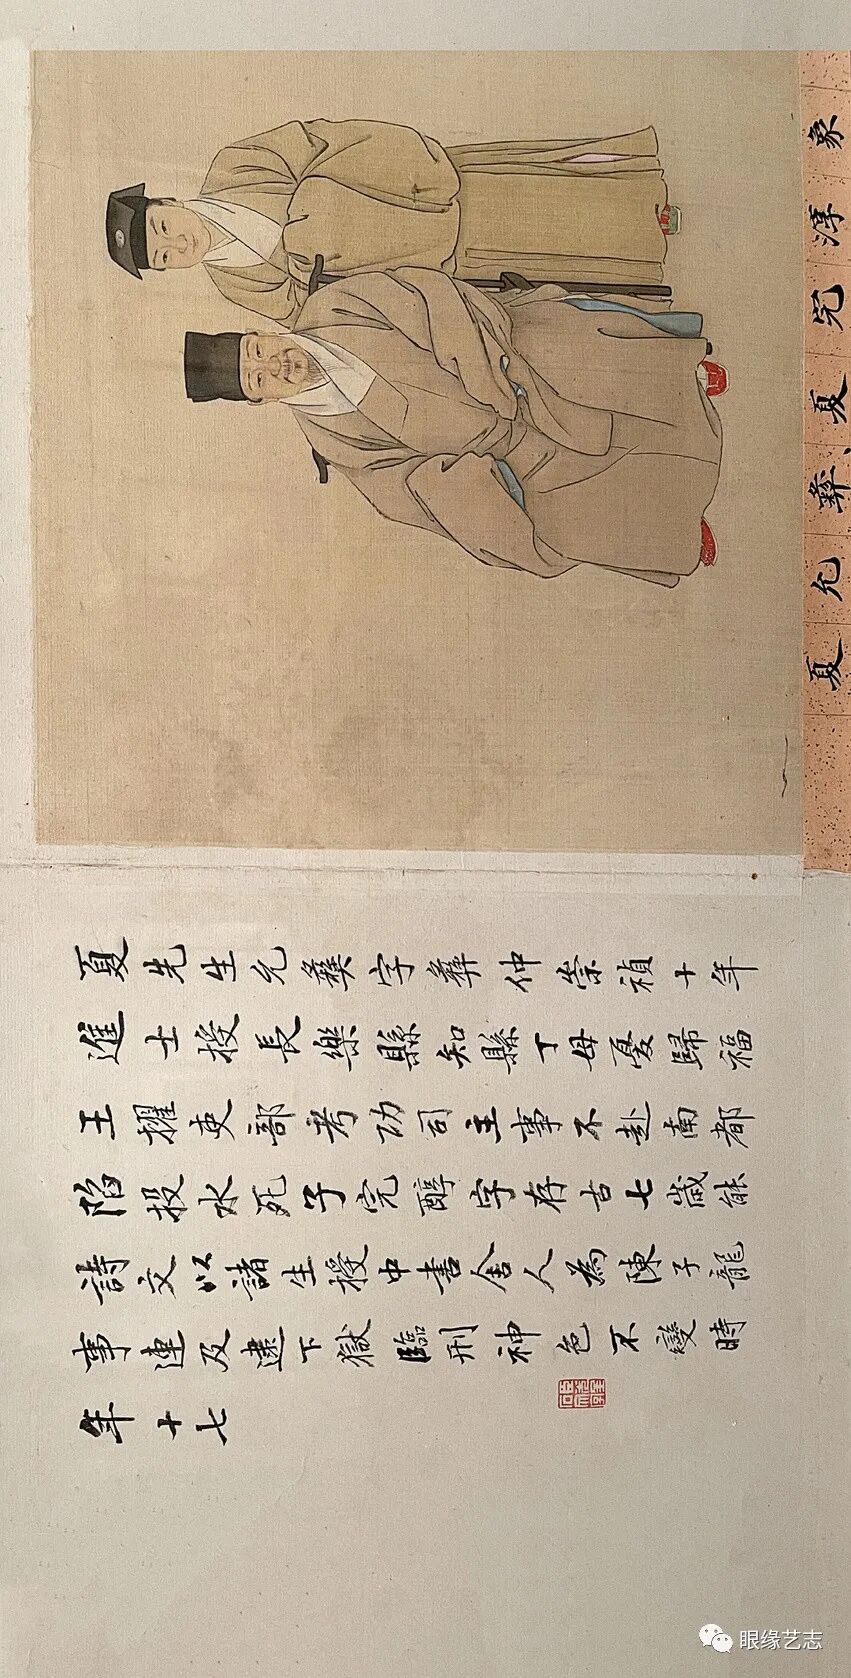 夏允彝、夏完淳象
夏先生允彝字彝仲崇禎十年
進士授長樂縣知縣丁母憂歸福
王擢吏部考功司主事不赴南都
陷投水死子完醇字存古七歲能
詩文以諸生授中書舍人為陳子龍
事連及逮下獄臨刑神色不變時
年十七
眼缘艺志